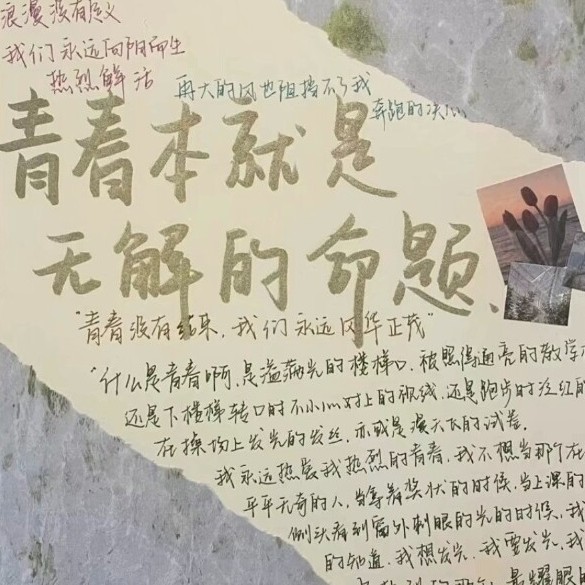 浪漫没有意义
我们永远向阳而生
热烈鲜活
再大的风也阻挡不了我
奔跑的决心
青春本就是
无解的命题、
"青春没有结束，我们永远风华正茂"
"什么是青春啊，是溢满光的楼梯口，被照得通亮的教学
还是下楼梯转口时不小心对上的视线，还是跑步时泛红的
在操场上发光的发丝，亦或是漫天飞的试卷。
我永远热爱我热烈的青春，我不想当那个在
平平无奇的人，当拿着奖状的时候，当上课的
侧头看到窗外刺眼的光的时候，我
的知道，我想发光，我要发光，我
最耀眼的